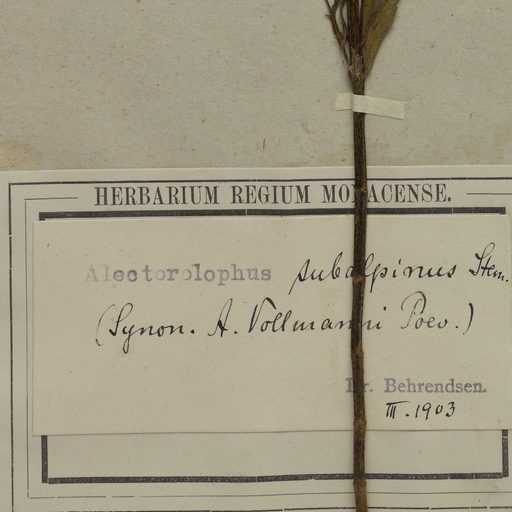 HERBARIUM REGIUM MONACENSE.
Alectorolophus subalpinus Stern.
(Synon. A. Vollmanni Poev.)
Dr. Behrendsen.
III. 1903